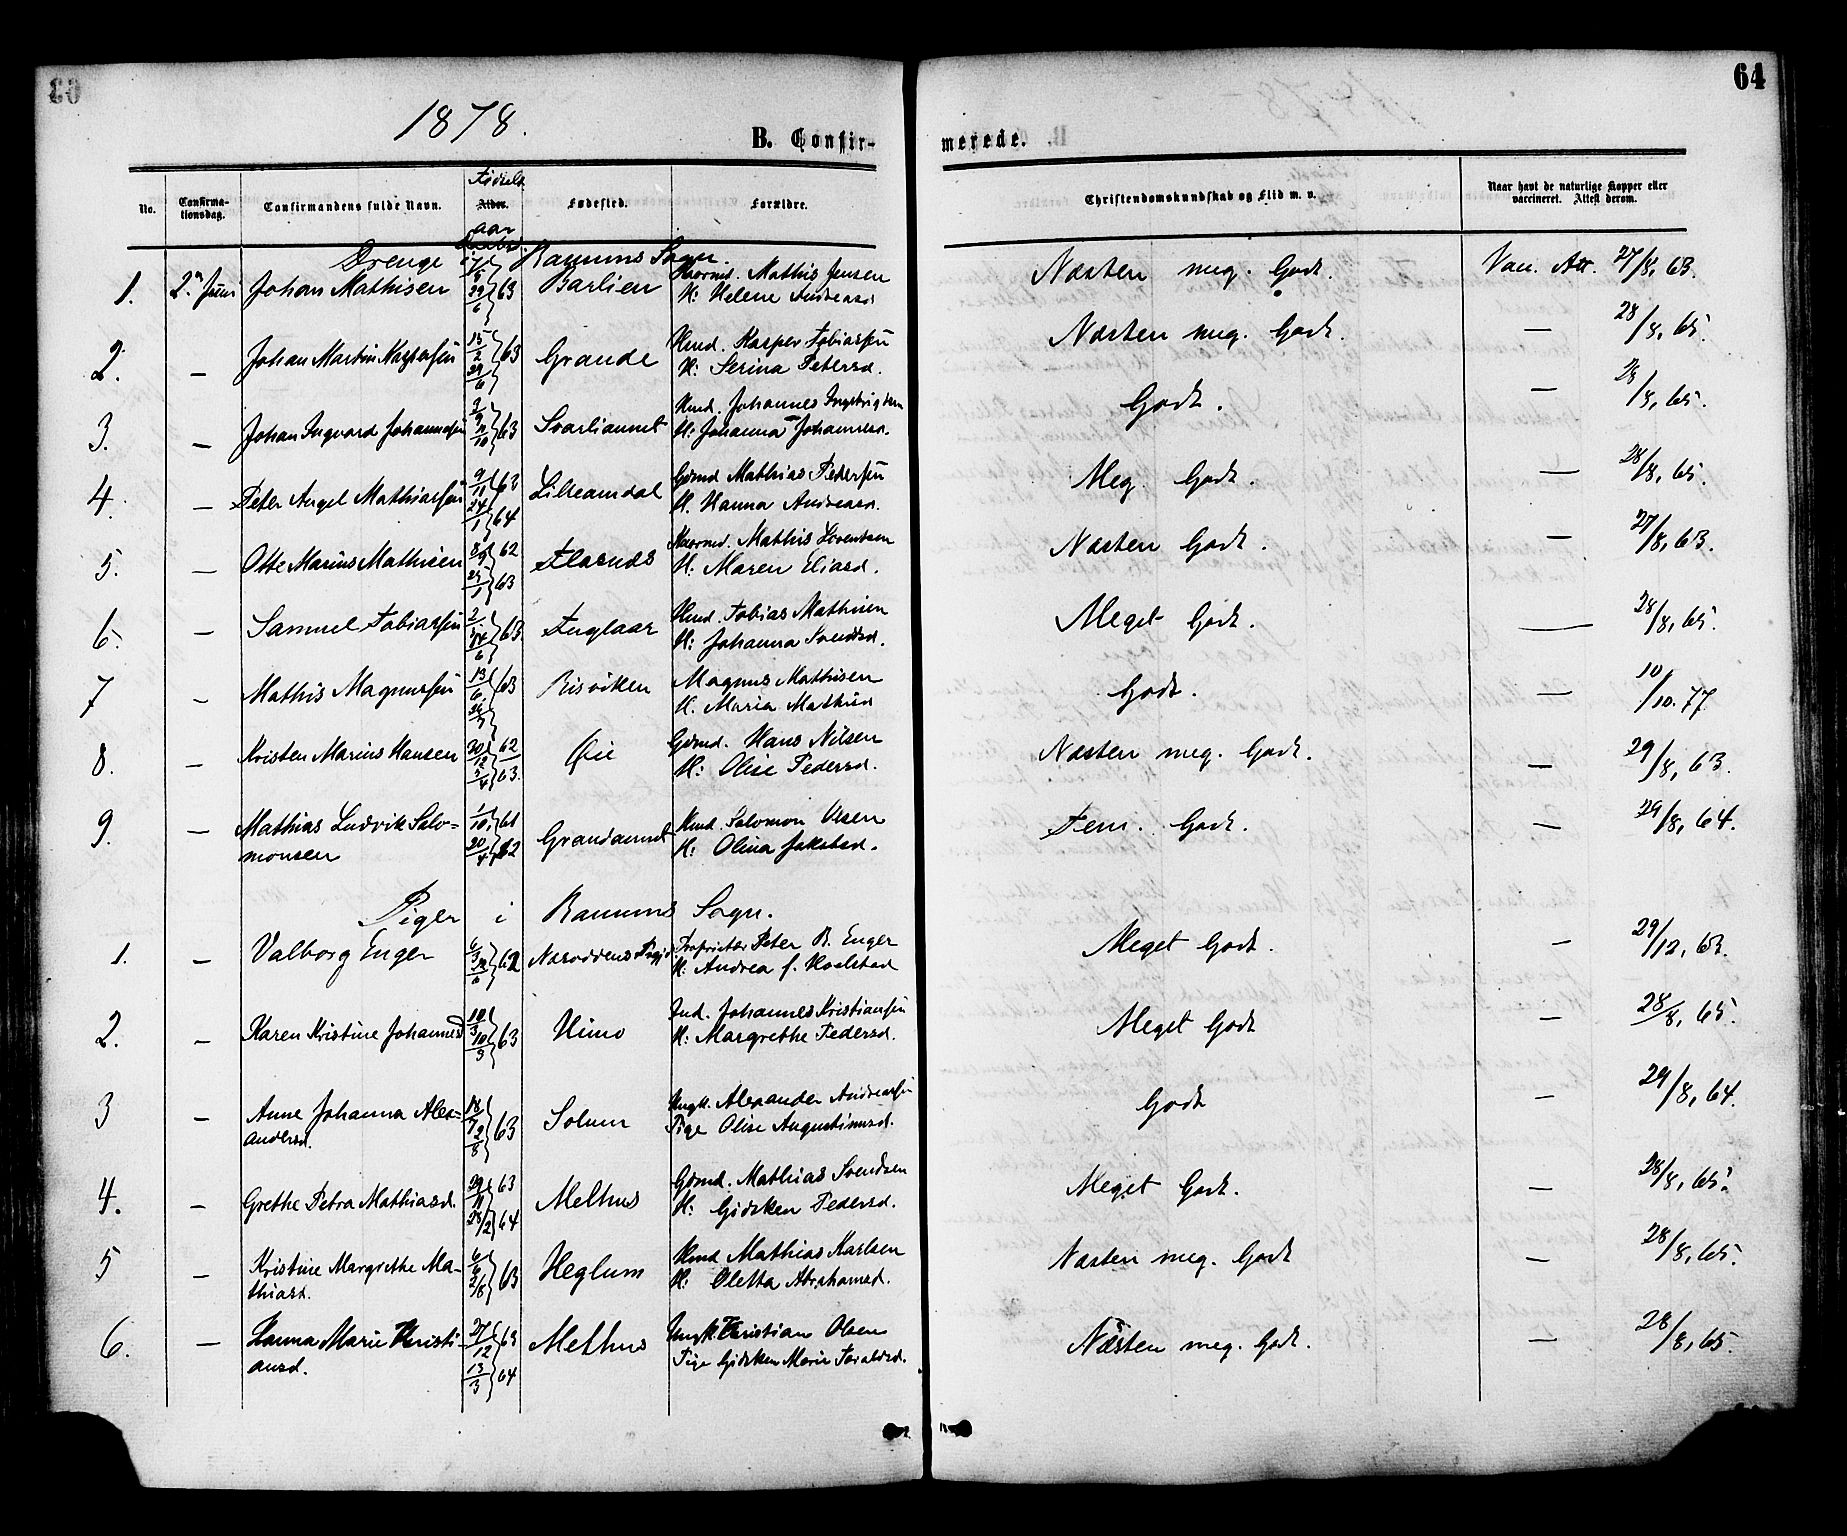 64
1878.
B. Confir-
merede.
No.
Confirma-
tionsdag.
Confirmandens fulde Navn.
Fødsels
Alder.
aar
Fødested.
Forældre.
Christendomskundskab og Flid m. v.
Naar havt de naturlige Kopper eller
vaccineret. Attest derom.
Drenge i Ranums Sogn.
1. 2n Juni Johan Mathisen 63 Barlien Mathis Jensen
H: Helene Andreasd
Næsten meg. Godt. Vac. Att. 27/8, 63.
2. — Johan Martin Kaspersen 15/2 29/6 63 Grande Hmd. Kasper Tobiassen
H: Serina Petersd.
Næsten meg. Godt. — 28/8, 65.
3. — Johan Ingvard Johannesen 63 Svarliaunet Hmd. Johannes
H: Johanna Johannesd.
Godt. — 28/8, 65.
4. — Peter Angel Mathiassen 9/11 63 24/1 64 Lilleamdal Gdmd Mathias Pedersen
H. Hanna Andreasd.
Meg. Godt. — 28/8, 65.
5. — Otte Marius Mathisen 62 63 Flasnds Mathis Lorentsen
H: Maren Eliasd.
Næsten Godt. — 27/8, 63.
6. — Samuel Tobiassen 63 Fuglaar Hmd. Tobias Mathisen
H: Johanna Svendsd.
Meget Godt. — 28/8, 65.
7 — Mathis Magnussen 13/6 63 Risviken Magnus Mathisen
H. Maria Mathisd
Godt. — 10/10. 77
8. — Kristen Marius Hansen 30/12 62 63. Øie Gdmd. Hans Nilsen
H: Olise Pedersd.
Næsten meg. Godt. — 29/8, 63.
9. — Mathias Ludvik Salo-
monsen 1/10 61 20/4 62 Grandaunet Hmd. Salomon Olsen
H: Olina Jakobsd.
Tem. Godt. — 29/8, 64.
Piger i Ranums Sogn.
1. — Valborg Enger 62 Proprietær Peter B. Enger
H: Andrea J. Hoelstad
Meget Godt. — 29/12, 63.
2. — Karen Kristine Johannesd 63 Himo Ind. Johannes Kristiansen
H: Margrethe Pedersd.
Meget Godt — 28/8, 65.
3 — Anne Johanna Alex-
andersd. 18/7 2/8 63 Solum Ungk. Alexander Andreassen
Pige Olise Augustinusd.
Godt — 29/8, 64.
4. — Grethe Petra Mathiasd. 29/11 63 28/2 64 Melhus Gdmd. Mathias Svendsen
H: Gidsken Pedersd.
Meget Godt. — 28/8, 65.
5 — Kristine Margrethe Ma-
thiasd. 6/6 2/8 63 Heglum Hmd Mathias Karlsen
H: Oletta Abrahamsd.
Næsten meg. Godt — 28/8, 65.
6. — Hanna Marie Kristi-
ansd. 27/12 63 13/3 64 Melhus Ungk. Kristian Olsen
Pige Gidsken Marie Toraldsd.
Næsten meg. Godt. — 28/8, 65.